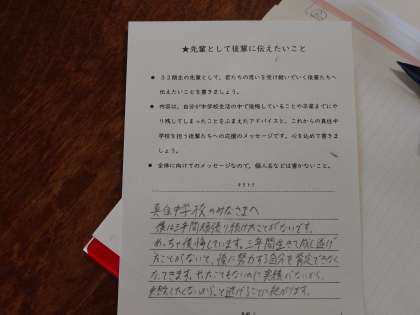 ★先輩として後輩に伝えたいこと
● 33期生の先輩として、君たちの思いを受け継いでいく後輩たちへ
伝えたいことを書きましょう。
● 内容は、自分が中学校生活の中で後悔していることや卒業までにや
り残してしまったことをふまえたアドバイスと、これからの真住中
学校を担う後輩たちへの応援のメッセージです。心を込めて書きま
しょう。
● 全体に向けてのメッセージなので、個人名などは書かないこと。
キリトリ
真住中学校のみなさまへ
僕は三年間頑張り続けたことがないです。
めっちゃ後悔しています。三年間生きて成し遂げ
たことがないと、後に努力する自分を肯定できなく
なってきます。やったこともないのに実績がないから、
失敗したくないから、と逃げることに繋がります。